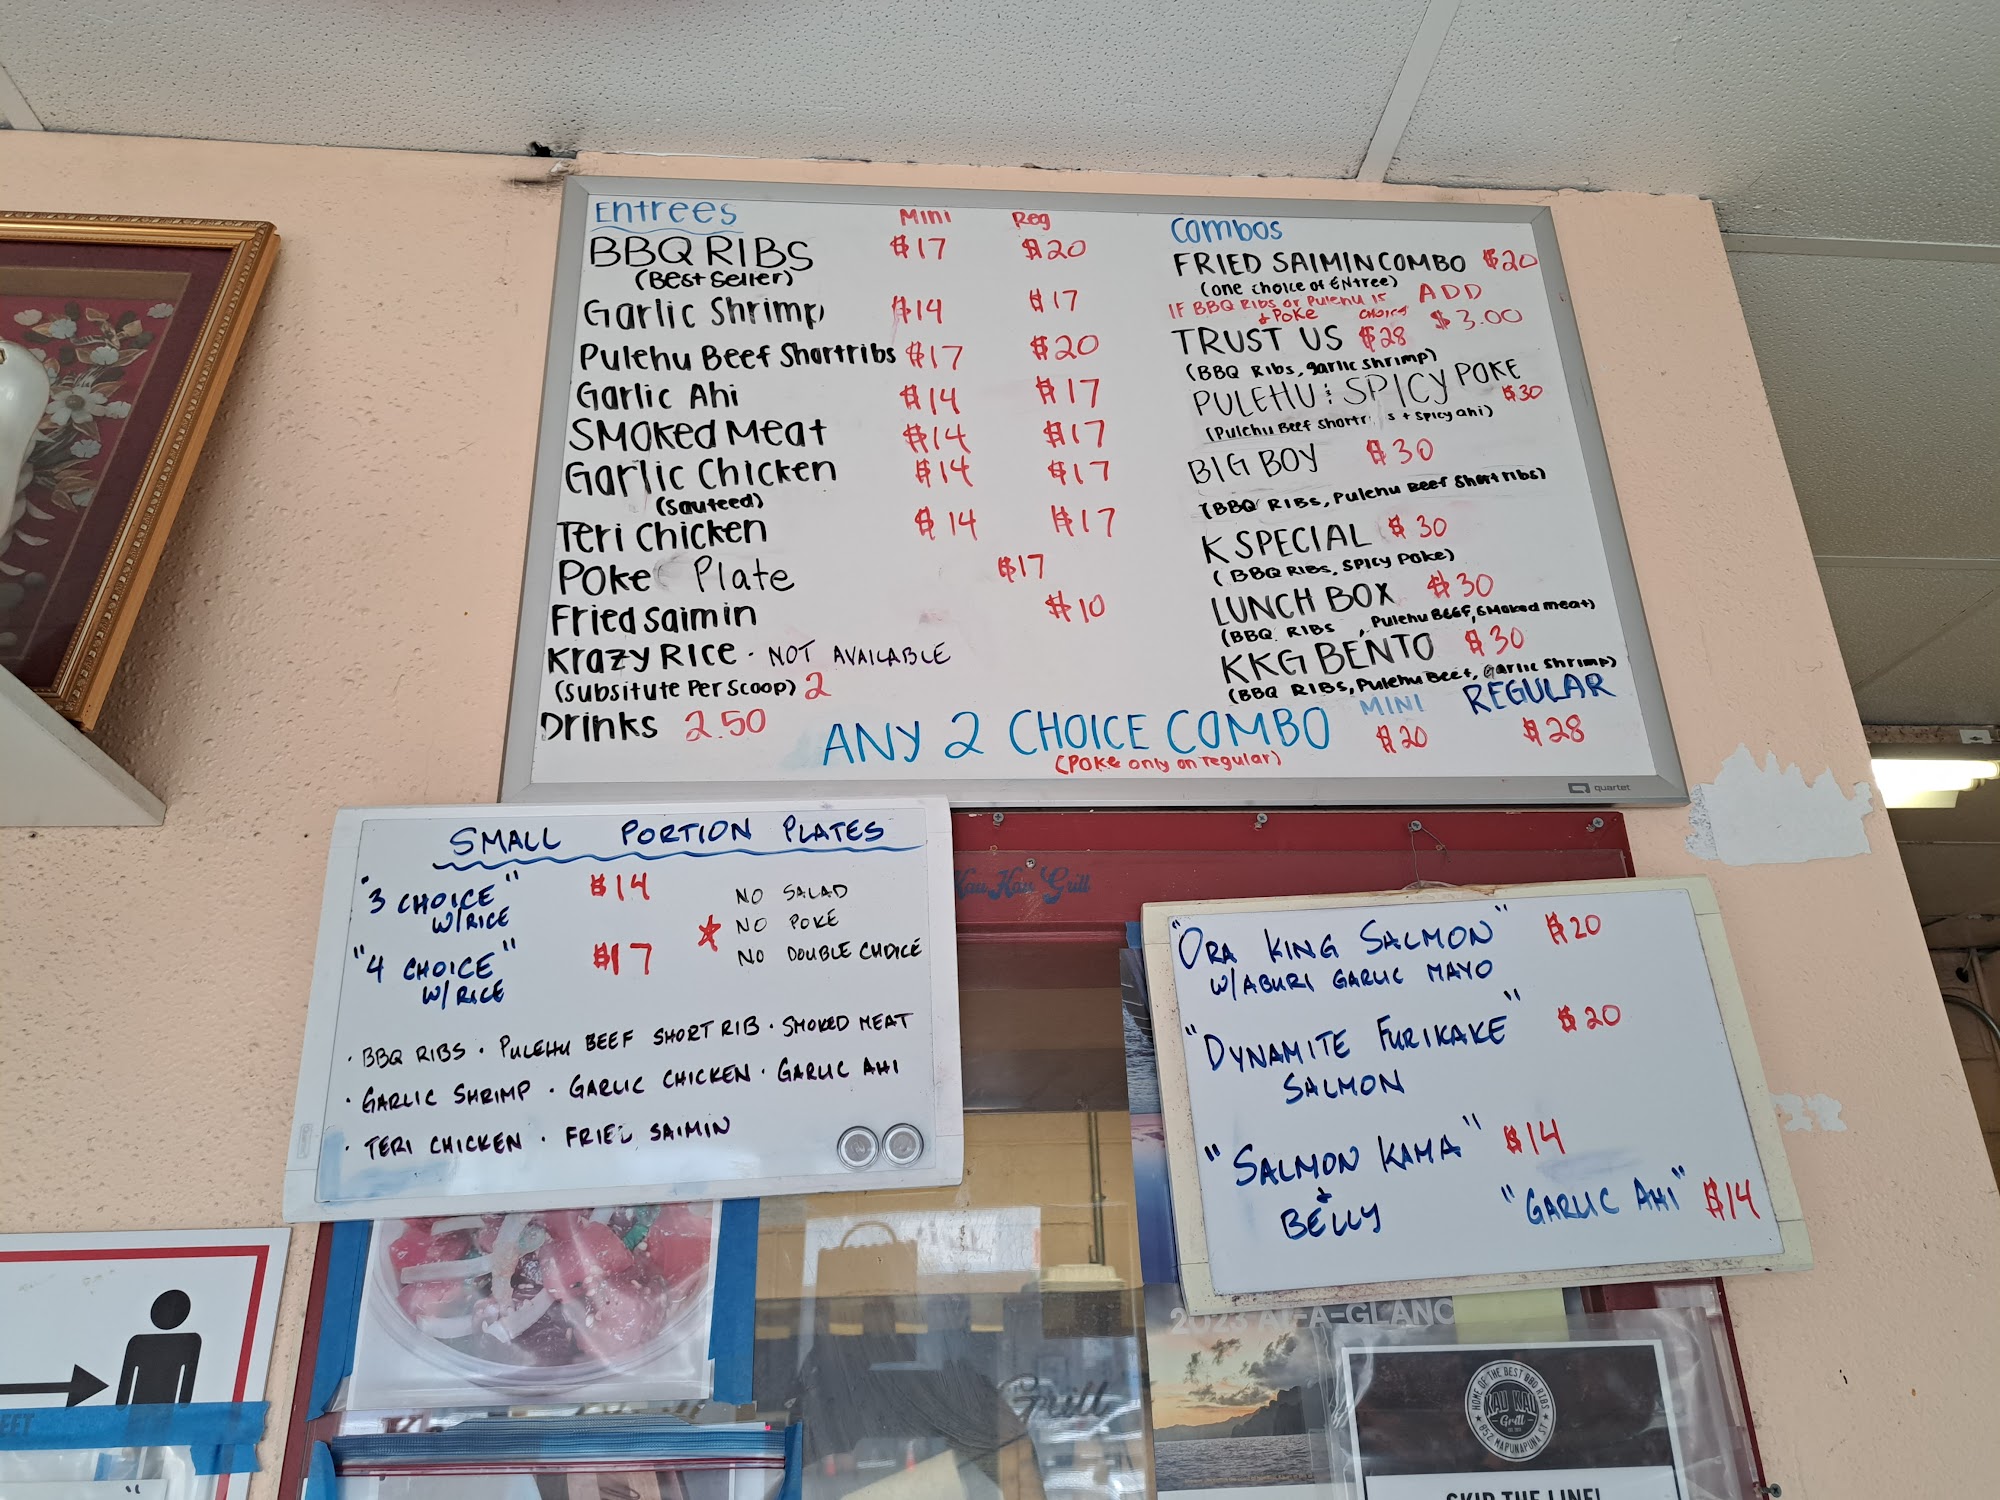 Entrees Mini Reg
BBQ RIBS $17 $20
(Best Seller)
Garlic Shrimp $14 $17
Pulehu Beef Shortribs $17 $20
Garlic Ahi $14 $17
SMOKED MEAT $14 $17
Garlic Chicken $14 $17
(Sauteed)
Teri Chicken $14 $17
POKE Plate $17
Fried Saimin $10
KrazyRice · NOT AVAILABLE
(Subsitute Per Scoop) 2
Drinks 2.50
Combos
FRIED SAIMIN COMBO $20
(one choice of ENtree)
IF BBQ Ribs or Pulehu is ADD
+ POKE choice $3.00
TRUST US $28
(BBQ Ribs, garlic shrimp)
PULEHU & SPICY POKE
$30
(Pulehu Beef Shortr s + Spicy ahi)
BIG BOY $30
(BBQ RIBS, Pulehu Beef Short ribs)
K SPECIAL $30
(BBQ RIBS, SPICY POKE)
LUNCH BOX $30
(BBQ RIBS, Pulehu BEEF, Smoked meat)
KKG BENTO $30
(BBQ RIBS, Pulehu Beef, Garlic Shrimp)
MINI REGULAR
ANY 2 CHOICE COMBO $20 $28
(POKE only on regular)
quartet
SMALL PORTION PLATES
"3 CHOICE" $14
W/RICE
"4 CHOICE" $17
W/RICE
NO SALAD
NO POKE
NO DOUBLE CHOICE
· BBQ RIBS · PULEHU BEEF SHORT RIB · SMOKED MEAT
· GARLIC SHRIMP · GARLIC CHICKEN · GARLIC AHI
· TERI CHICKEN · FRIED SAIMIN
Kau Kau Grill
"ORA KING SALMON" $20
W/ABURI GARLIC MAYO
"DYNAMITE FURIKAKE" $20
SALMON
"SALMON KAMA" $14
+
BELLY
"GARLIC AHI" $14
2023 AT-A-GLANC
Grill
HOME OF THE BEST BBQ RIBS
KAU KAU
Grill
852 MAPUNAPUNA ST
SKIP THE LINE!
EET